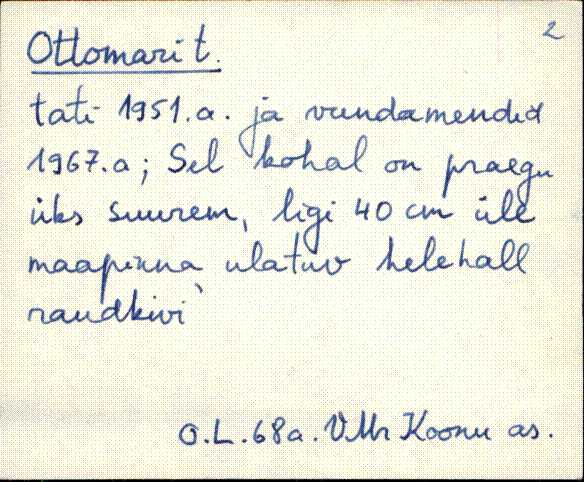 2
Ottomari t.
tati 1951.a. ja vundamendid
1967.a; Sel kohal on praegu
üks suurem, ligi 40 cm üle
maapinna ulatuv helehall
raudkivi
O.L.68a. VMr Koonu as.